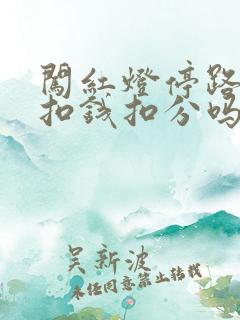 闖紅燈停路
扣錢扣分嗎
吴新波
未经同意禁止转载